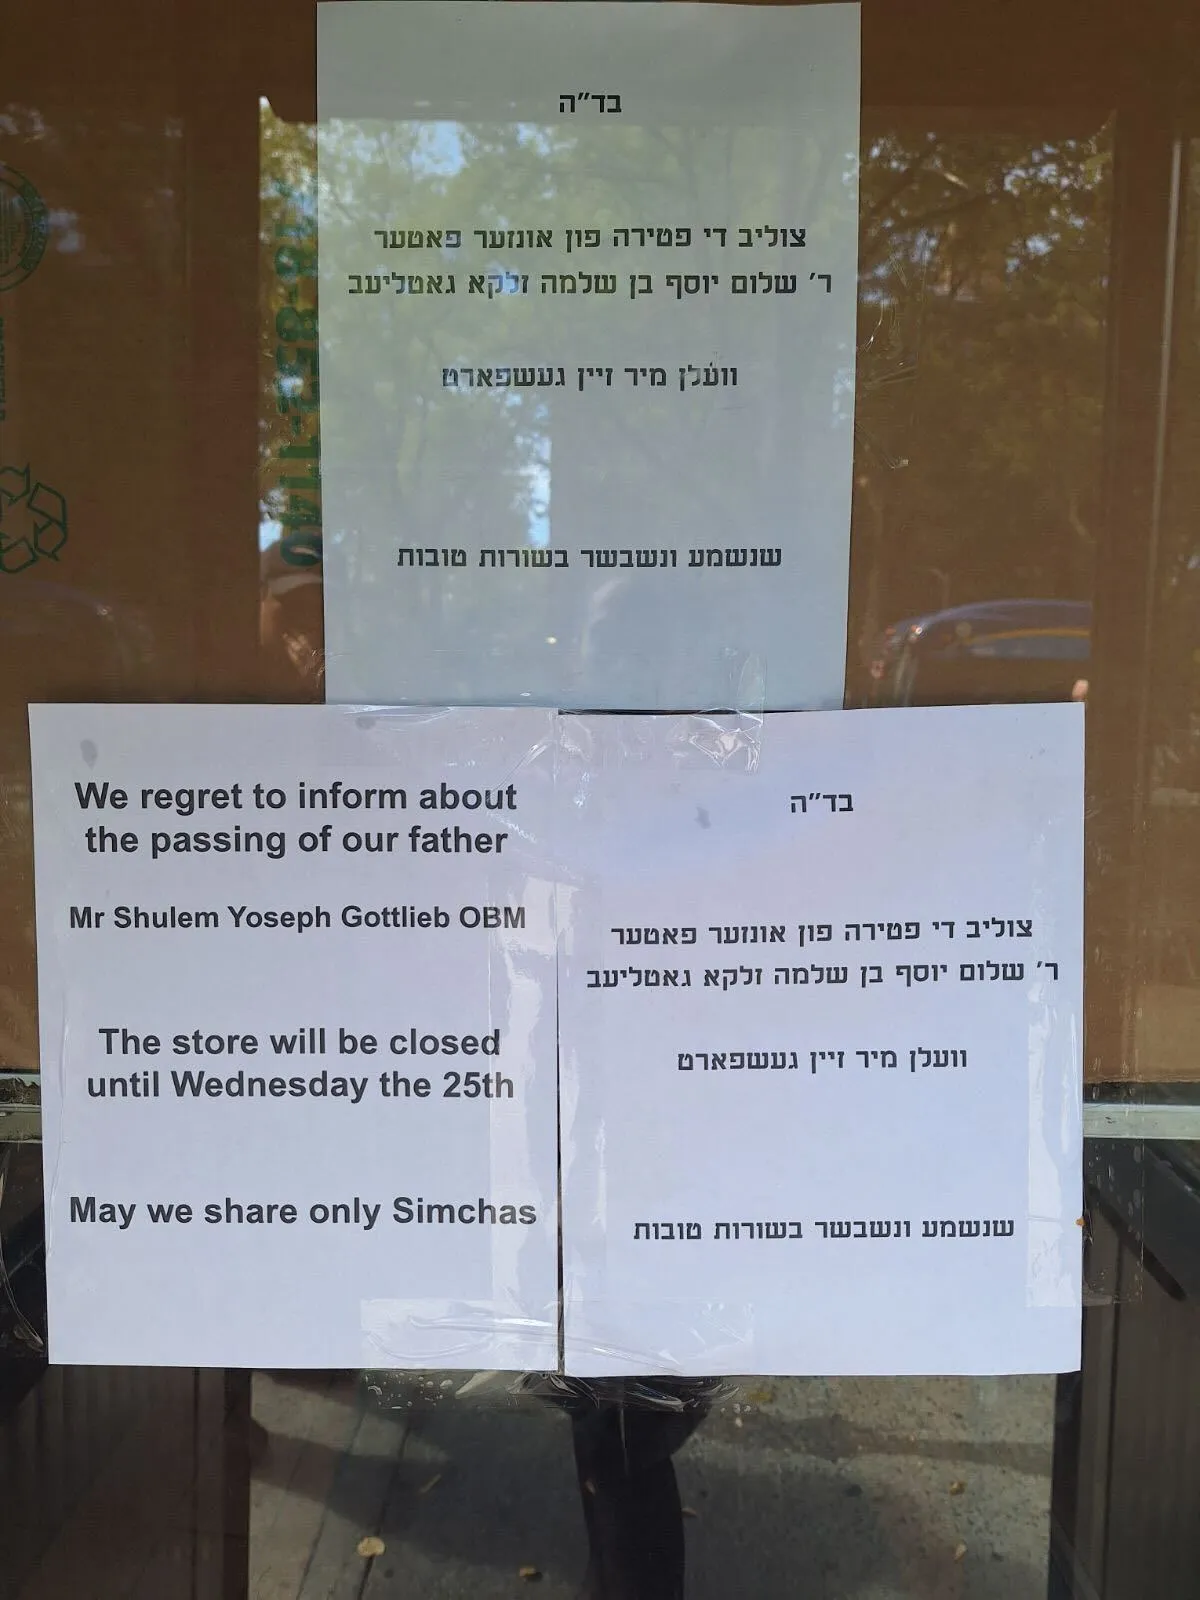 בד"ה
צוליב די פטירה פון אונזער פאטער
ר' שלום יוסף בן שלמה זלקא גאטליעב
וועלן מיר זיין געשפארט
שנשמע ונשבשר בשורות טובות
We regret to inform about
the passing of our father
Mr Shulem Yoseph Gottlieb OBM
The store will be closed
until Wednesday the 25th
May we share only Simchas
בד"ה
צוליב די פטירה פון אונזער פאטער
ר' שלום יוסף בן שלמה זלקא גאטליעב
וועלן מיר זיין געשפארט
שנשמע ונשבשר בשורות טובות